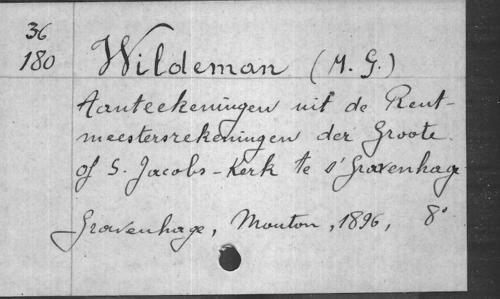 36
180
Wildeman (M. G.)
Aanteekeningen uit de Rent-
meestersrekeningen der Groote
of S. Jacobs-Kerk te s'Gravenhage
Gravenhage, Mouton, 1896, 8°